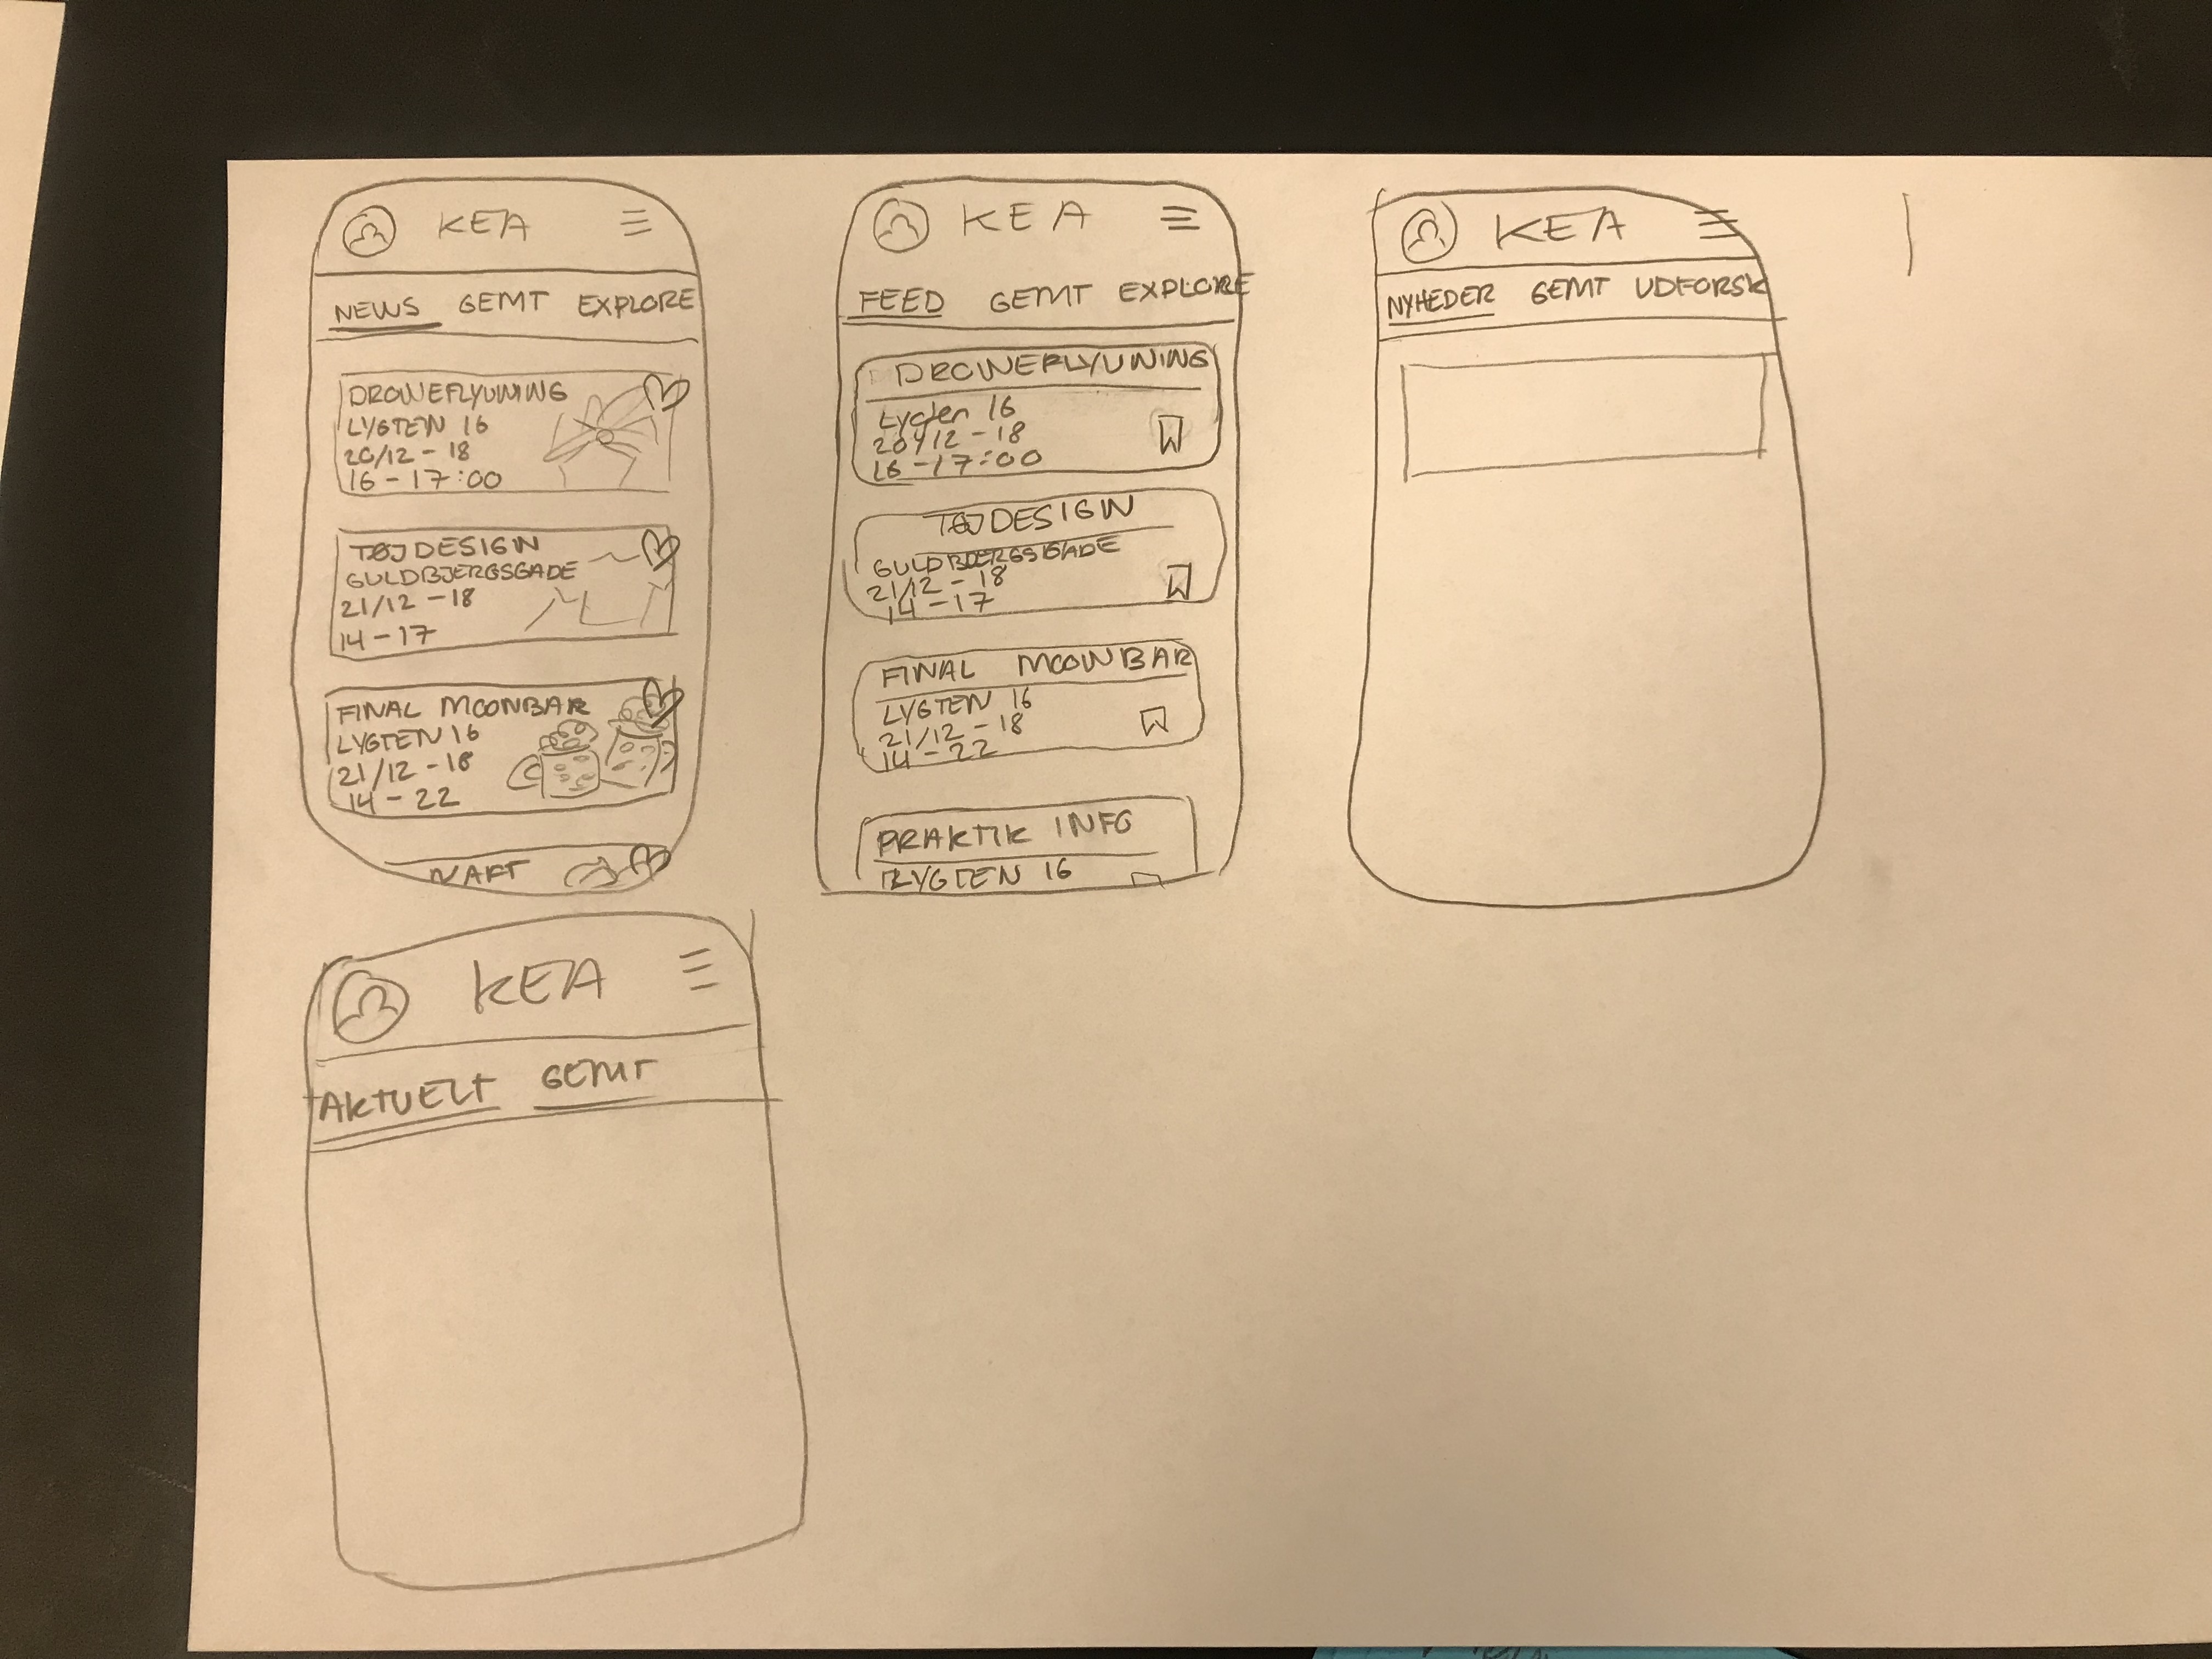 KEA
NEWS GEMT EXPLORE
DRONEFLYVNING
LYGTEN 16
20/12 - 18
16 - 17:00
TØJDESIGN
GULDBERGSGADE
21/12 - 18
14 - 17
FINAL MOONBAR
LYGTEN 16
21/12 - 18
14 - 22
KEA
FEED GEMT EXPLORE
DRONEFLYVNING
Lygten 16
20/12 - 18
16 - 17:00
TØJDESIGN
GULDBERGSGADE
21/12 - 18
14 - 17
FINAL MOONBAR
LYGTEN 16
21/12 - 18
14 - 22
PRAKTIK INFO
LYGTEN 16
KEA
NYHEDER GEMT UDFORSK
KEA
AKTUELT GEMT